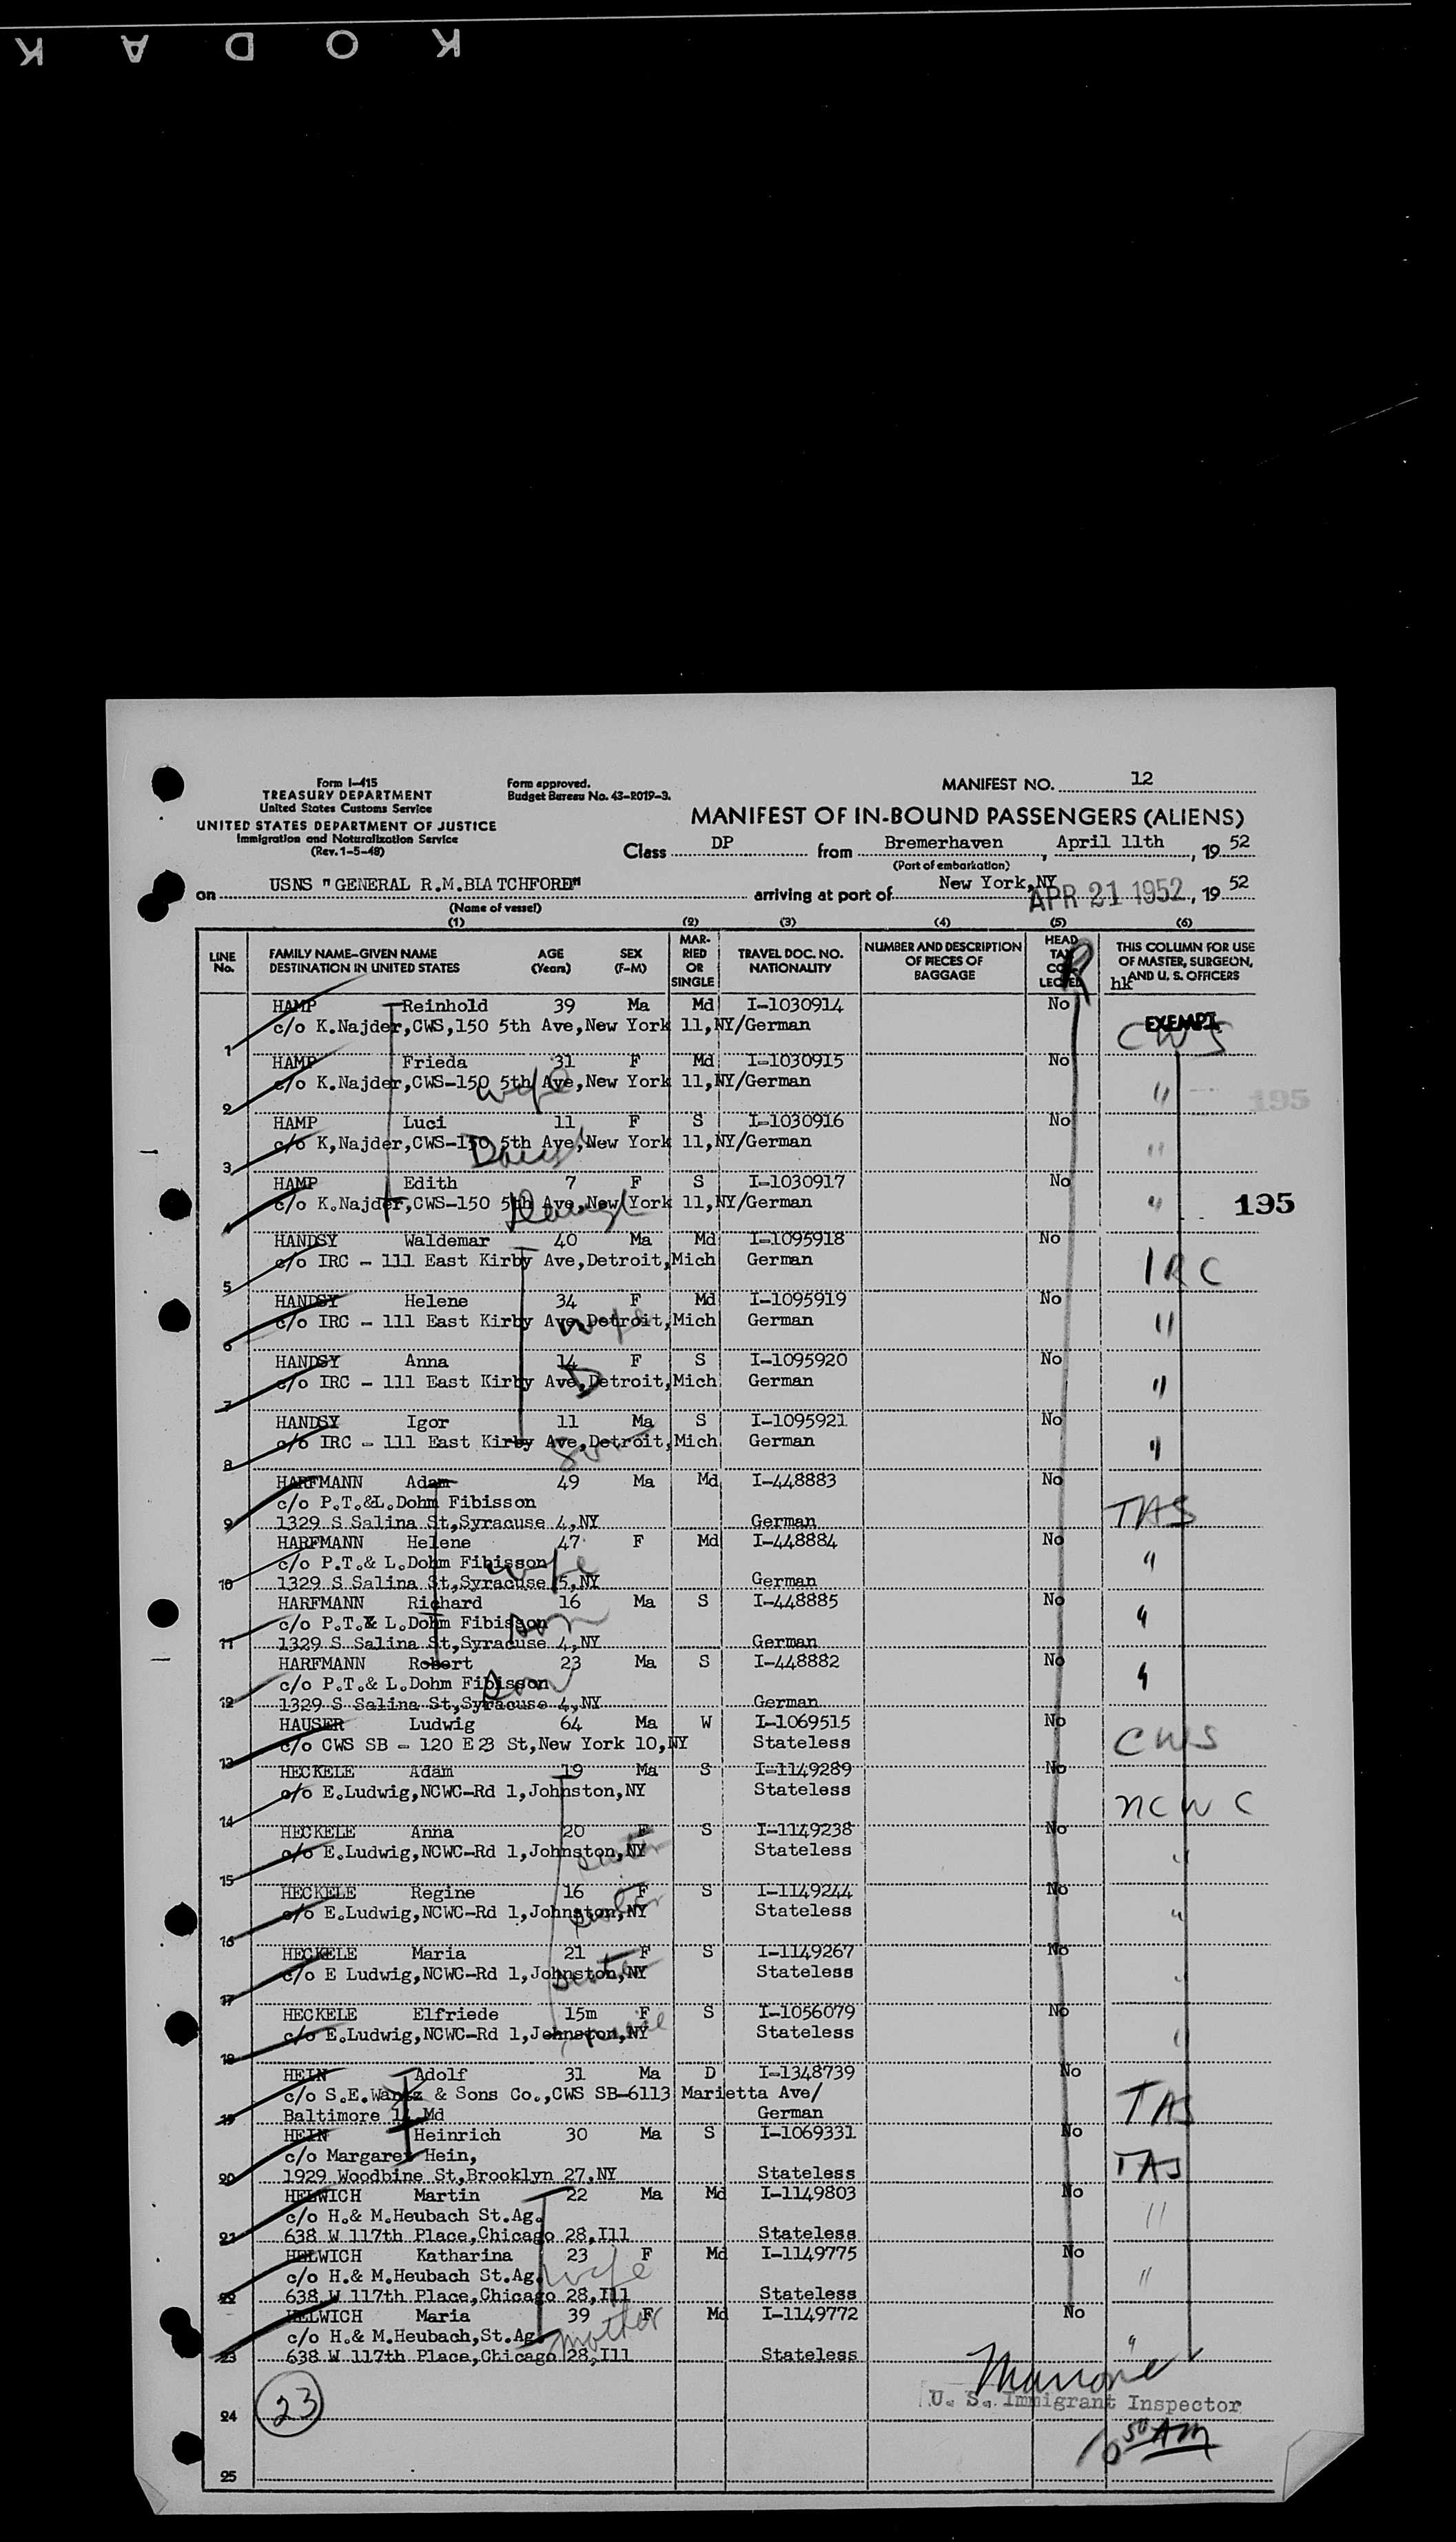 KODAK
Form I-415
TREASURY DEPARTMENT
United States Customs Service
UNITED STATES DEPARTMENT OF JUSTICE
Immigration and Naturalization Service
(Rev. 1-5-48)
Form approved.
Budget Bureau No. 43-R019-3.
MANIFEST NO. 12
MANIFEST OF IN-BOUND PASSENGERS (ALIENS)
Class DP from Bremerhaven, April 11th, 19 52
(Port of embarkation)
on USNS "GENERAL R.M.BLATCHFORD" arriving at port of New York,NY APR 21 1952, 19 52
(Name of vessel)
(1) (2) (3) (4) (5) (6)
LINE No.
FAMILY NAME-GIVEN NAME DESTINATION IN UNITED STATES
AGE (Years)
SEX (F-M)
MARRIED OR SINGLE
TRAVEL DOC. NO. NATIONALITY
NUMBER AND DESCRIPTION OF PIECES OF BAGGAGE
HEAD TAX COLLECTED
THIS COLUMN FOR USE OF MASTER, SURGEON, AND U. S. OFFICERS
hk
HAMP Reinhold 39 Ma Md I-1030914 No EXEMPT
1 c/o K.Najder,CWS,150 5th Ave,New York 11,NY/German CWS
HAMP Frieda 31 F Md I-1030915 No
2 c/o K.Najder,CWS-150 5th Ave,New York 11,NY/German wife "
195
HAMP Luci 11 F S I-1030916 No
3 c/o K,Najder,CWS-150 5th Ave,New York 11,NY/German "
HAMP Edith 7 F S I-1030917 No
4 c/o K.Najder,CWS-150 5th Ave,New York 11,NY/German "
195
HANDSY Waldemar 40 Ma Md I-1095918 No
5 c/o IRC - 111 East Kirby Ave,Detroit,Mich German IRC
HANDSY Helene 34 F Md I-1095919 No
6 c/o IRC - 111 East Kirby Ave,Detroit,Mich German wife "
HANDSY Anna 14 F S I-1095920 No
7 c/o IRC - 111 East Kirby Ave,Detroit,Mich German D "
HANDSY Igor 11 Ma S I-1095921 No
8 c/o IRC - 111 East Kirby Ave,Detroit,Mich German son "
HARFMANN Adam 49 Ma Md I-448883 No
c/o P.T.&L.Dohm Fibisson
9 1329 S Salina St,Syracuse 4,NY German TAS
HARFMANN Helene 47 F Md I-448884 No
c/o P.T.& L.Dohm Fibisson wife "
10 1329 S Salina St,Syracuse 5,NY German
HARFMANN Richard 16 Ma S I-448885 No
c/o P.T.& L.Dohm Fibisson son "
11 1329 S Salina St,Syracuse 4,NY German
HARFMANN Robert 23 Ma S I-448882 No
c/o P.T.& L.Dohm Fibisson son "
12 1329 S Salina St,Syracuse 4,NY German
HAUSER Ludwig 64 Ma W I-1069515 No
13 c/o CWS SB - 120 E 23 St,New York 10,NY Stateless CWS
HECKELE Adam 19 Ma S I-1149289 No
14 c/o E.Ludwig,NCWC-Rd 1,Johnston,NY Stateless NCWC
HECKELE Anna 20 F S I-1149238 No
15 c/o E.Ludwig,NCWC-Rd 1,Johnston,NY Stateless sister "
HECKELE Regine 16 F S I-1149244 No
16 c/o E.Ludwig,NCWC-Rd 1,Johnston,NY Stateless sister "
HECKELE Maria 21 F S I-1149267 No
17 c/o E Ludwig,NCWC-Rd 1,Johnston,NY Stateless sister "
HECKELE Elfriede 15m F S I-1056079 No
18 c/o E.Ludwig,NCWC-Rd 1,Johnston,NY Stateless "
HEIN Adolf 31 Ma D I-1348739 No
c/o S.E.Wantz & Sons Co.,CWS SB-6113 Marietta Ave/ TAS
19 Baltimore 14 Md German
HEIN Heinrich 30 Ma S I-1069331 No
c/o Margaret Hein, TAS
20 1929 Woodbine St,Brooklyn 27,NY Stateless
HELWICH Martin 22 Ma Md I-1149803 No
c/o H.& M.Heubach St.Ag. "
21 638 W 117th Place,Chicago 28,Ill Stateless
HELWICH Katharina 23 F Md I-1149775 No
c/o H.& M.Heubach St.Ag. wife "
22 638 W 117th Place,Chicago 28,Ill Stateless
HELWICH Maria 39 F Md I-1149772 No
c/o H.& M.Heubach,St.Ag. mother "
23 638 W 117th Place,Chicago 28,Ill Stateless
23
U. S. Immigrant Inspector
24
25